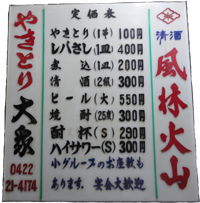 定価表
やきとり(1本)100円
レバさし(1皿)400円
煮込(1皿)200円
清酒(2級)300円
ビール(大)550円
焼酎(25度)300円
酎杯(S)290円
ハイサワー(S)300円
小グループのお座敷も
あります。宴会大歓迎
清酒
風林火山
やきとり大衆
0422
21-4174